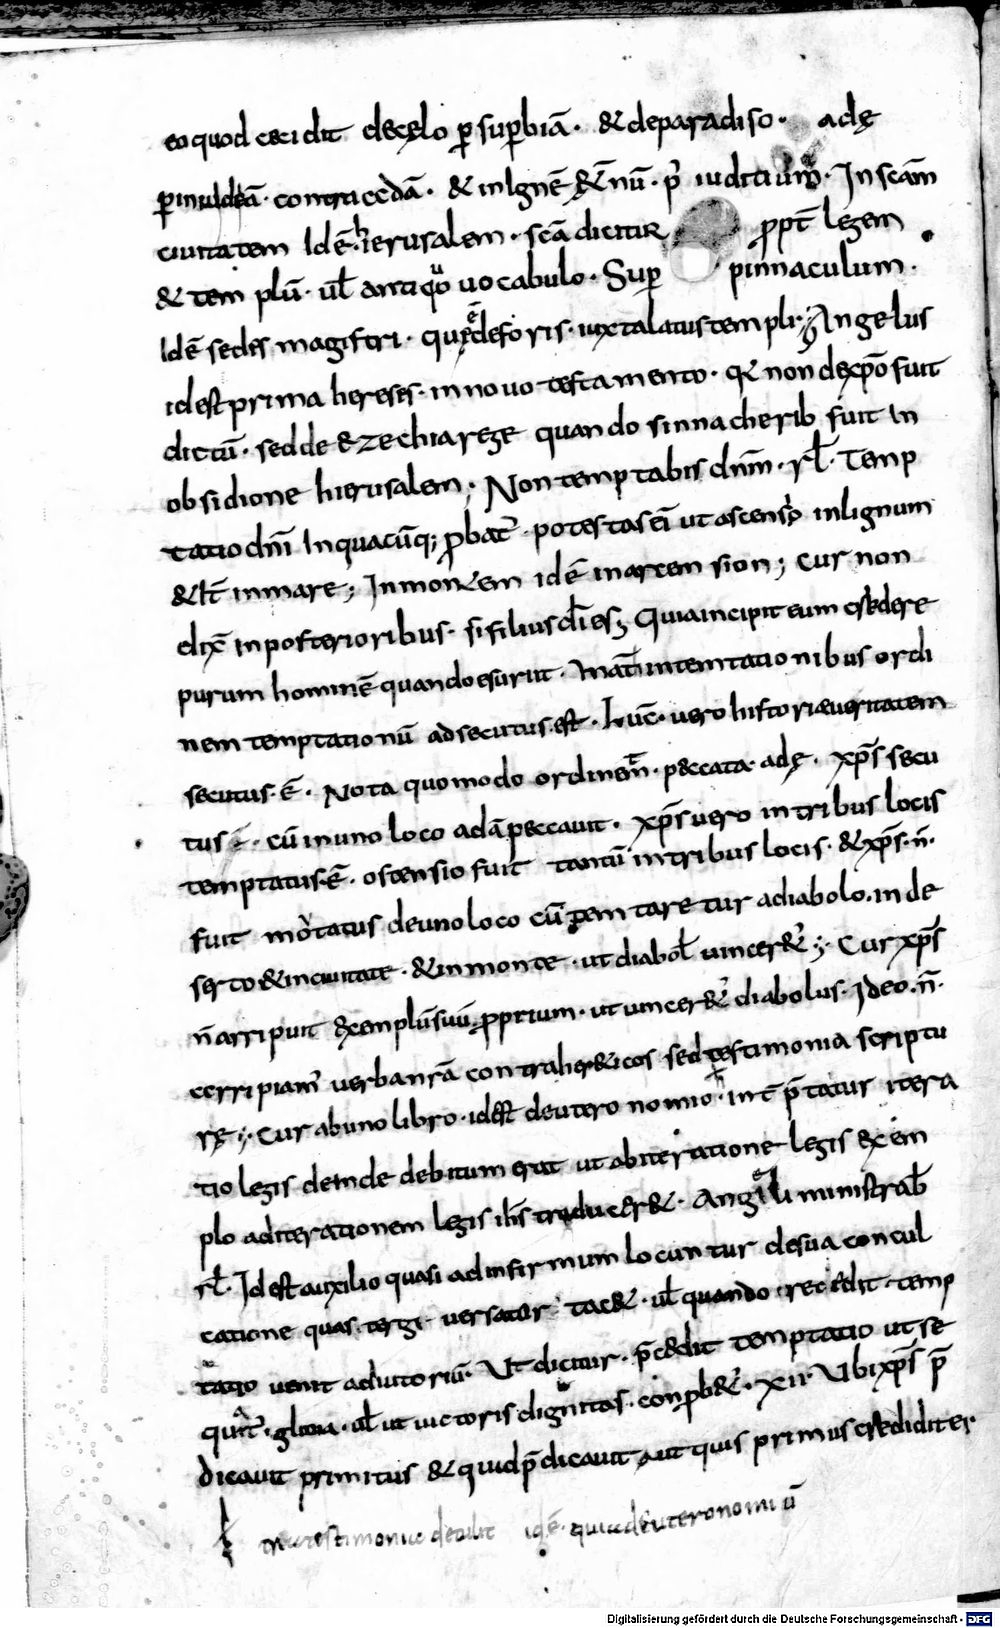 eo quod cecidit de cęlo p̄ sup̄biā · & de paradiso · adę
p̄ inuidiā · contra &dā · & in ignē & n̄ū · p̄ iuditiūm · In scām
ciuitatem Idē hierusalem · scā dicitur propt̄ legem
& templū · ul̄ antiquo uocabulo · Sup̄ pinnaculum ·
Idē sedes magistri · quę de foris · iuxta latus templi ; Angelus
idest prima hereses · in nouo testamento · q non de xp̄o fuit
dictū · sed de &zechia rege quando sinnacherib fuit In
obsidione hierusalem ; Non temptabis dnm̄ · rl̄ · Temp
tatio dn̄i In quacūq; p̄bat̄ · potestas ei ut ascensio in lignum
& in mare ; In montem idē in arcem sion ; Cur non
dix̄ in posterioribus · si filius dī es ; Quia incipit eum credere
purum hominē quando esuriit · Math̄ in temtationibus ordi
nem temptationū adsecutus est · Luc̄ · uero historiæ ueritatem
secutus · ē · Nota quomodo ordinem · peccata · adę · xp̄s secu
tus ē · cū in uno loco adā peccauit · xp̄s uero in tribus locis
temptatus · ē · ostensio fuit tantū in tribus locis · & xp̄s · n̄ ·
fuit motatus de uno loco cū temtaretur a diabolo · in de
serto & in ciuitate · & in monte · ut diabol̄ uincer& ; Cur xp̄s
n̄ arripuit exemplū suū proprium · ut uincer& diabolus · Ideo · n̄ ·
cerripiam̄ uerba nr̄a contra her&icos sed testimonia scriptu
rę ; Cur ab uno libro · idest deuteronomio · int̄p̄tatur itera
tio legis deinde debitum erat ut ab iteratione legis exem
plo ad iterationem legis ih̄s traducer& · Angeli ministrab̄
rl̄ · Idest auxilio quasi ad infirmum locuntur de sua concul
catione quas · tergi · uersatur tac& · ul̄ quando recedit · temp
tatio uenit adiutoriū · Ut dicitur · p̄cedit temptatio ut se
quat̄ · gloria · ul̄ ut uictoris dignitas · conp̄b& · XII · Ubi xp̄s p̄
dicauit primitus & quid p̄dicauit aut quis primus crediderit
tria testimonia detulit idē · quia deuteronomiū
Digitalisierung gefördert durch die Deutsche Forschungsgemeinschaft - DFG